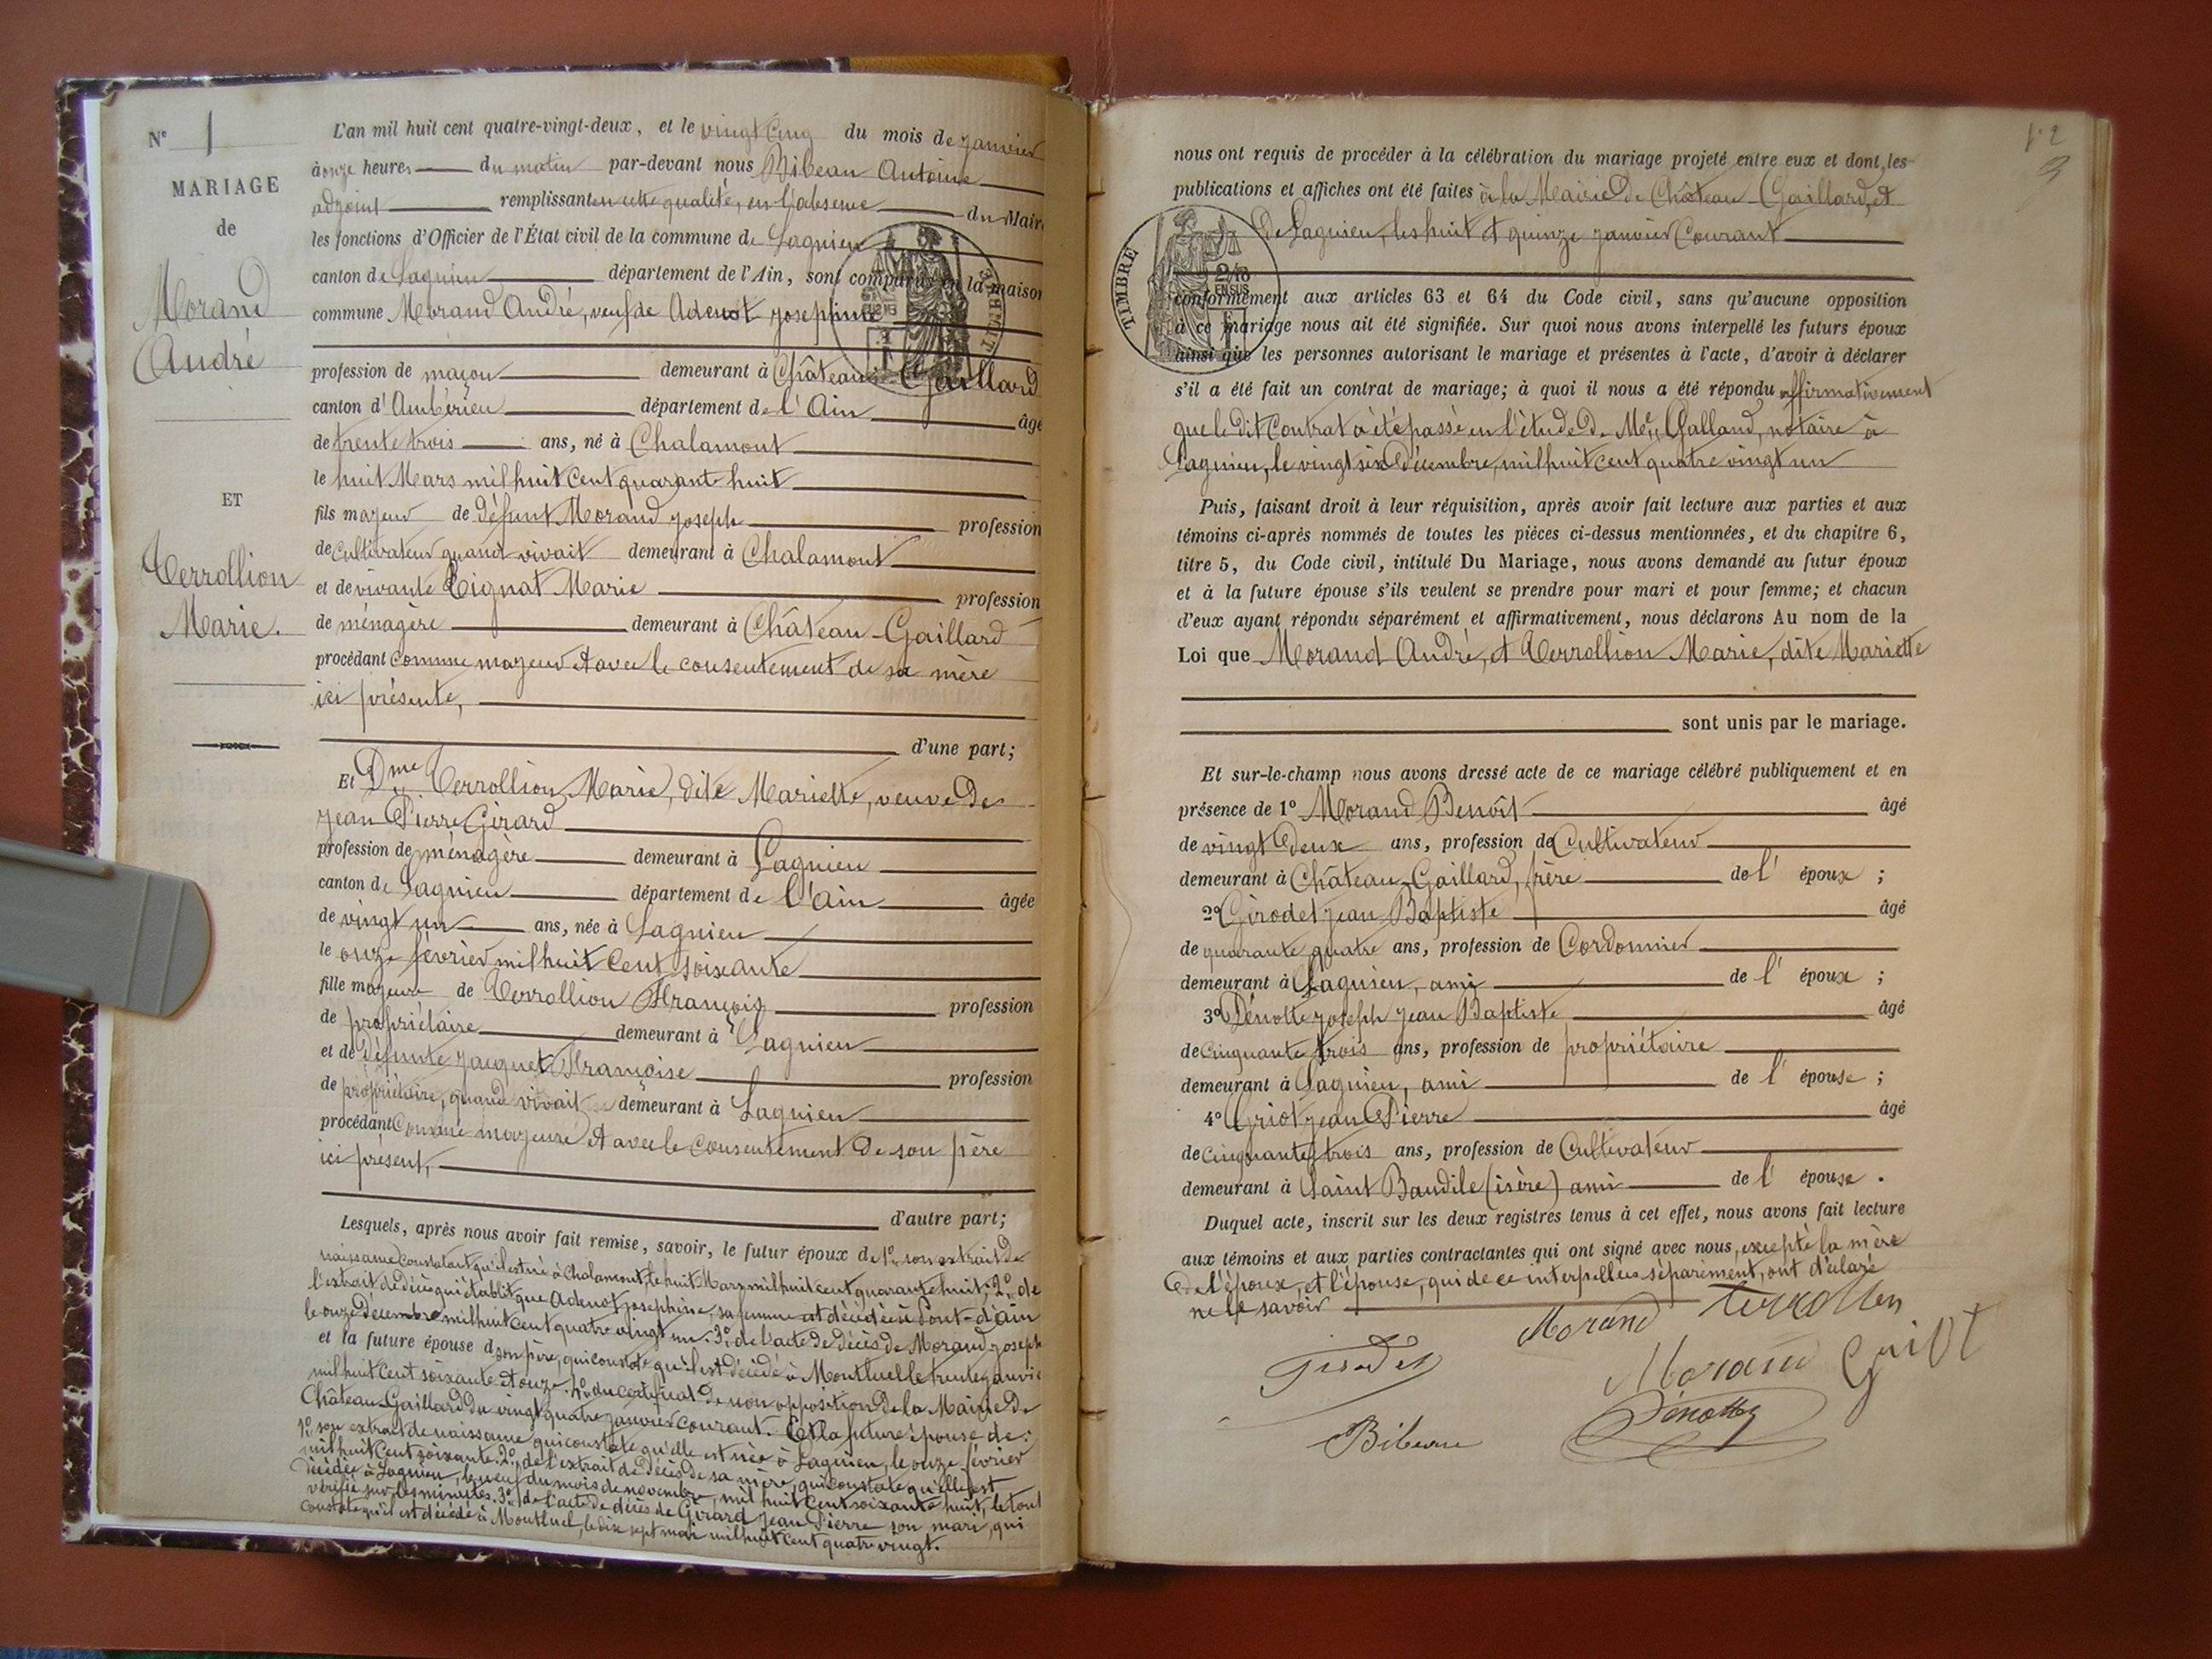 N° 1
MARIAGE
de
Morand
André
ET
Terrollion
Marie.
L'an mil huit cent quatre-vingt-deux, et le vingt cinq du mois de janvier
à onze heures du matin par-devant nous Bibeau Antoine
adjoint remplissant en cette qualité, en l'absence du Maire
les fonctions d'Officier de l'État civil de la commune de Lagnieu
canton de Lagnieu département de l'Ain, sont comparus en la maison
commune Morand André, veuf de Adenot Josephine
profession de maçon demeurant à Château-Gaillard
canton d'Ambérieu département de l'Ain âgé
de trente trois ans, né à Chalamont
le huit Mars mil huit cent quarante huit
fils majeur de défunt Morand Joseph profession
de cultivateur quand vivait demeurant à Chalamont
et de vivante Pignat Marie profession
de ménagère demeurant à Château-Gaillard
procédant comme majeur et avec le consentement de sa mère
ici présente,
d'une part;
Et Dme Terrollion Marie, dite Mariette, veuve de
Jean Pierre Girard
profession de ménagère demeurant à Lagnieu
canton de Lagnieu département de l'Ain âgée
de vingt un ans, née à Lagnieu
le onze février mil huit cent soixante
fille majeure de Terrollion François profession
de propriétaire demeurant à Lagnieu
et de défunte Jacquet Françoise profession
de propriétaire, quand vivait demeurant à Lagnieu
procédant comme majeure et avec le consentement de son père
ici présent,
d'autre part;
Lesquels, après nous avoir fait remise, savoir, le futur époux de 1° son extrait de
naissance constatant qu'il est né à Chalamont, le huit Mars mil huit cent quarante huit; 2° de
l'extrait de décès qui établit que Adenot Josephine, sa femme est décédée à Pont-d'Ain
le onze décembre mil huit cent quatre vingt un. 3° de l'acte de décès de Morand Joseph
et la future épouse d son père, qui constate qu'il est décédé à Montluel le trente janvier
mil huit cent soixante et onze. 4° du certificat de non opposition de la Mairie de
Château-Gaillard du vingt quatre janvier courant. Et la future épouse de:
1° son extrait de naissance qui constate qu'elle est née à Lagnieu, le onze février
mil huit cent soixante. 2° de l'extrait de décès de sa mère, qui constate qu'elle est
décédée à Lagnieu, le neuf du mois de novembre, mil huit cent soixante huit, le tout
vérifié sur les minutes. 3° de l'acte de décès de Girard Jean Pierre son mari, qui
constate qu'il est décédé à Montluel, le dix sept mai mil huit cent quatre vingt.
nous ont requis de procéder à la célébration du mariage projeté entre eux et dont les
publications et affiches ont été faites à la Mairie de Château-Gaillard, et
de Lagnieu, les huit et quinze janvier courant
TIMBRE
2/10
EN SUS
conformément aux articles 63 et 64 du Code civil, sans qu'aucune opposition
à ce mariage nous ait été signifiée. Sur quoi nous avons interpellé les futurs époux
ainsi que les personnes autorisant le mariage et présentes à l'acte, d'avoir à déclarer
s'il a été fait un contrat de mariage; à quoi il nous a été répondu affirmativement
que le dit contrat a été passé en l'étude de Me Galland, notaire à
Lagnieu, le vingt six décembre, mil huit cent quatre vingt un
Puis, faisant droit à leur réquisition, après avoir fait lecture aux parties et aux
témoins ci-après nommés de toutes les pièces ci-dessus mentionnées, et du chapitre 6,
titre 5, du Code civil, intitulé Du Mariage, nous avons demandé au futur époux
et à la future épouse s'ils veulent se prendre pour mari et pour femme; et chacun
d'eux ayant répondu séparément et affirmativement, nous déclarons Au nom de la
Loi que Morand André, et Terrollion Marie, dite Mariette
sont unis par le mariage.
Et sur-le-champ nous avons dressé acte de ce mariage célébré publiquement et en
présence de 1° Morand Benoît âgé
de vingt deux ans, profession de Cultivateur
demeurant à Château-Gaillard, frère de l' époux ;
2° Girodet Jean Baptiste âgé
de quarante quatre ans, profession de Cordonnier
demeurant à Lagnieu, ami de l' époux ;
3° Dénolte Joseph Jean Baptiste âgé
de cinquante trois ans, profession de propriétaire
demeurant à Lagnieu, ami de l' épouse ;
4° Griot Jean Pierre âgé
de cinquante trois ans, profession de Cultivateur
demeurant à Saint Baudile (isère) ami de l' épouse .
Duquel acte, inscrit sur les deux registres tenus à cet effet, nous avons fait lecture
aux témoins et aux parties contractantes qui ont signé avec nous, excepté la mère
de l'époux, et l'épouse, qui de ce interpellées séparément, ont déclaré
ne le savoir
Morand Terrollion
Girodet Morand Griot
Bibeau Dénolte